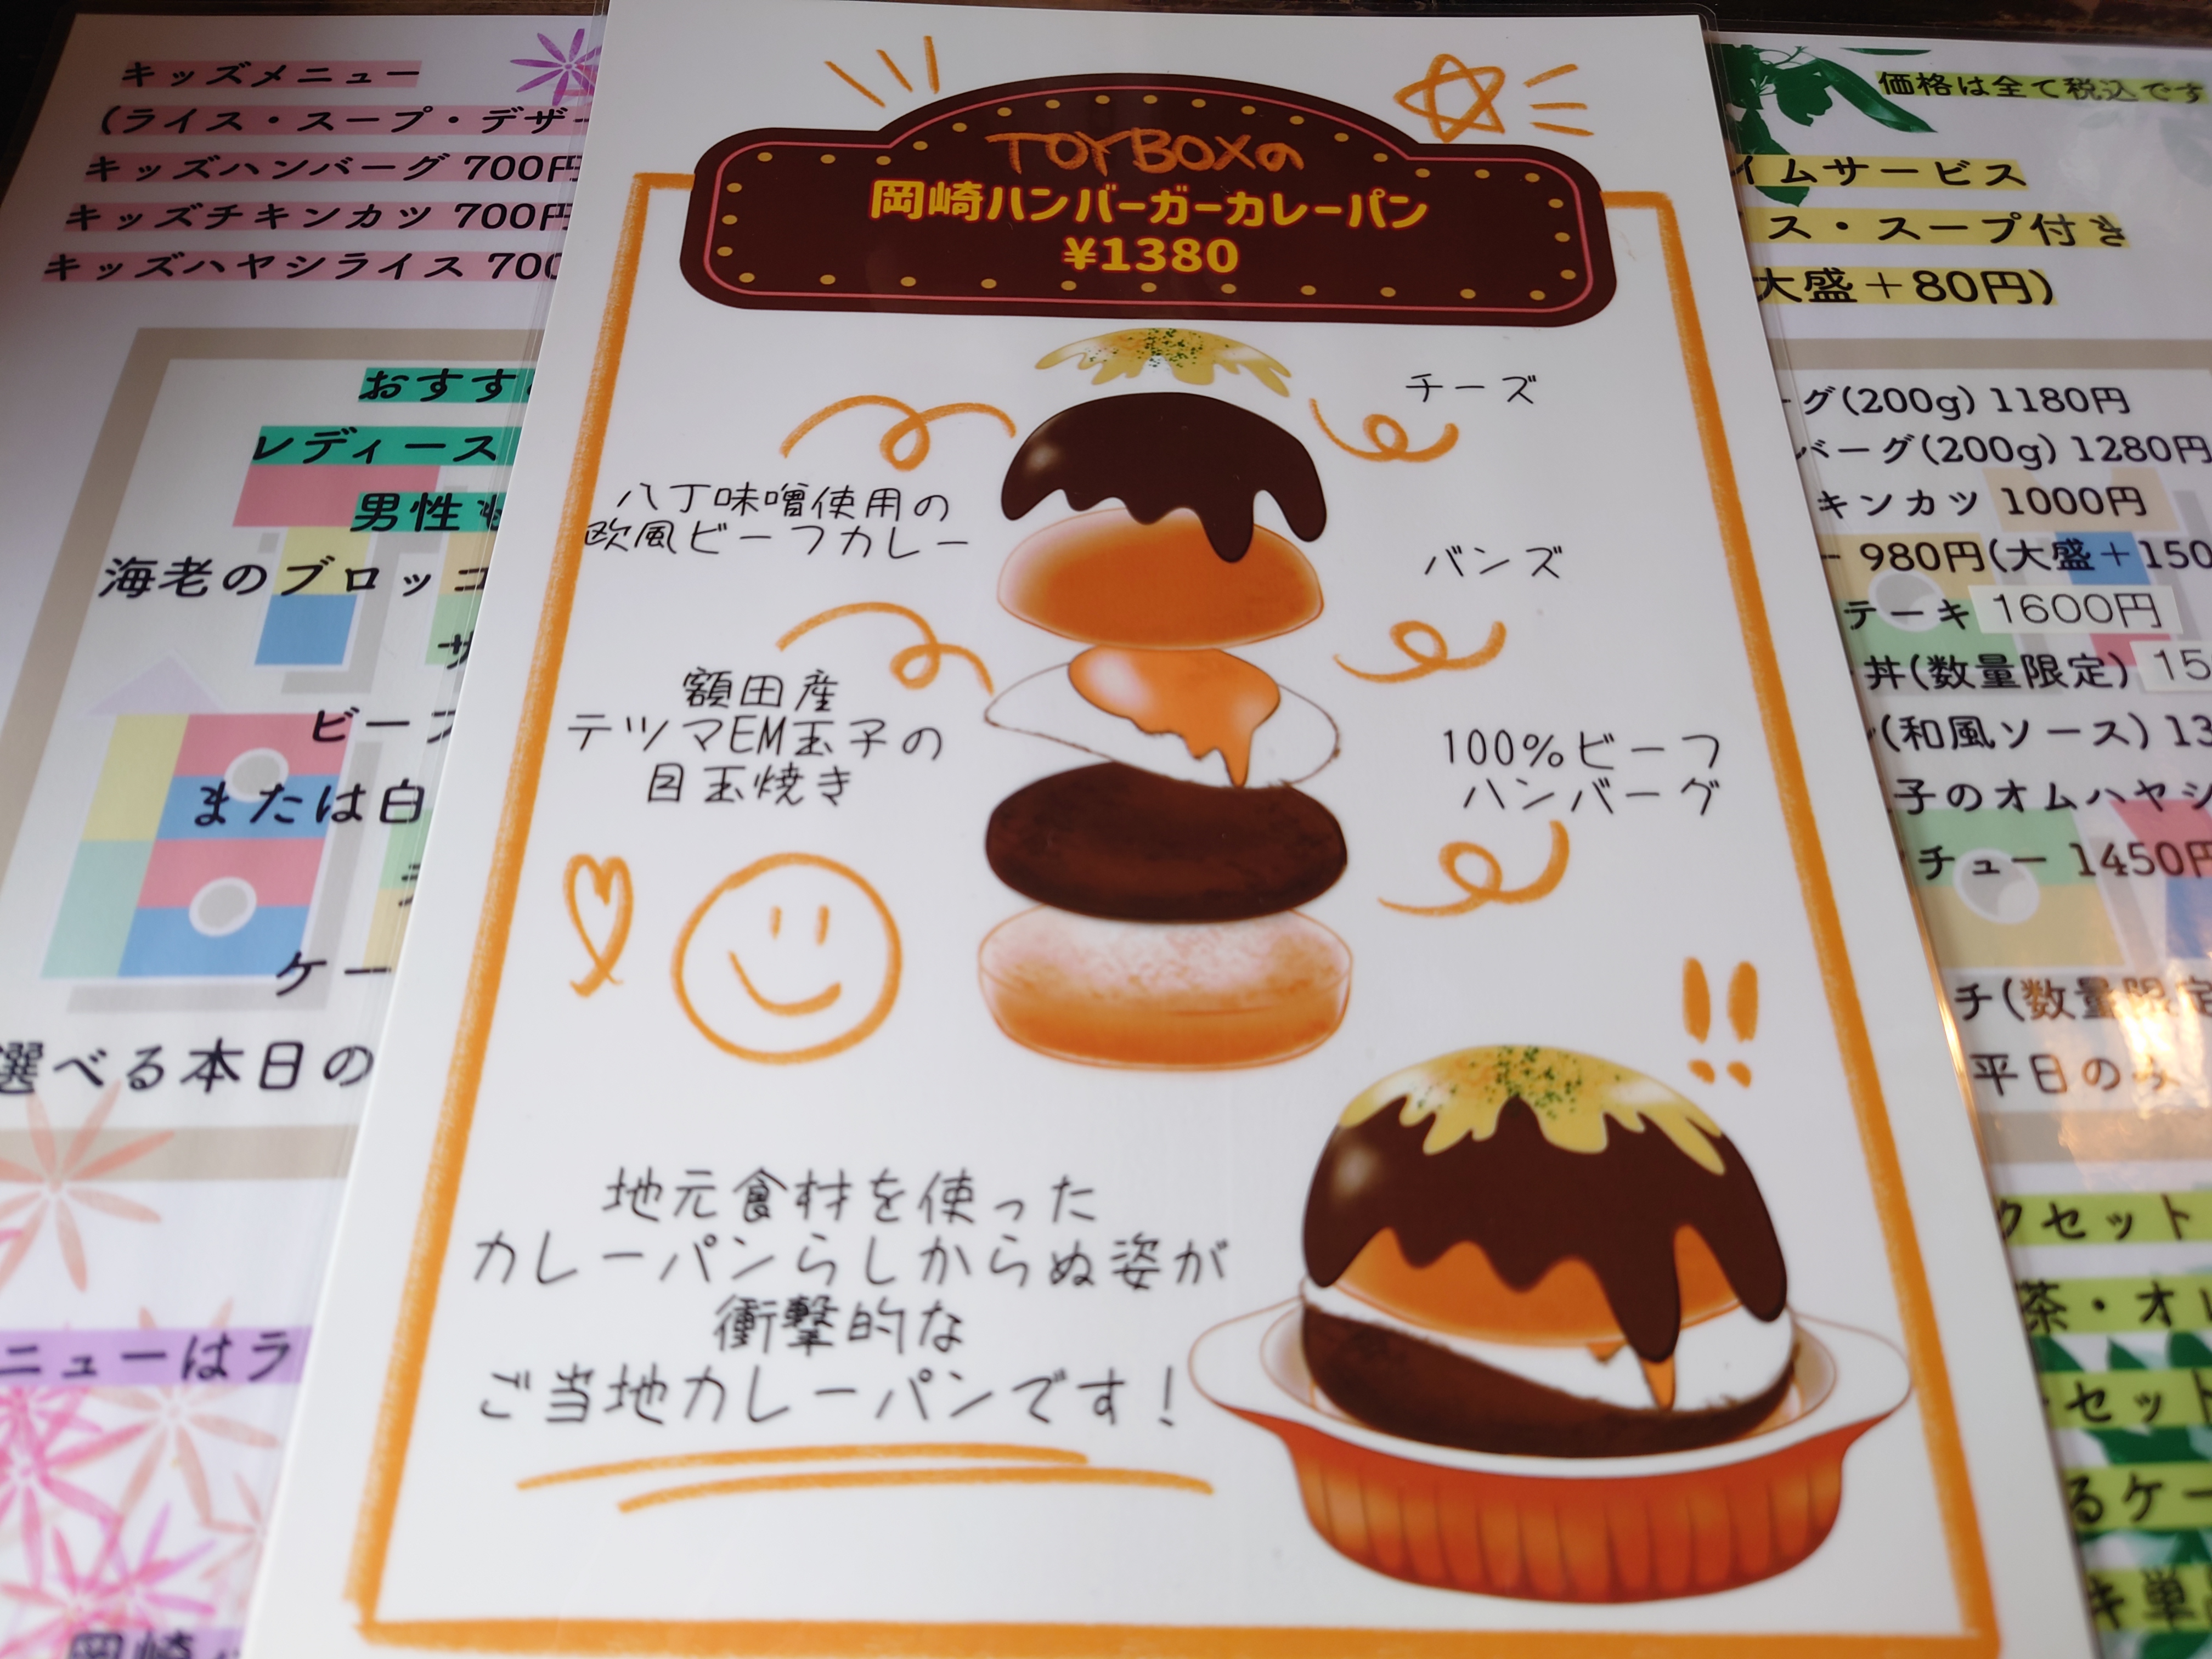 キッズメニュー
(ライス・スープ・デザー
キッズハンバーグ 700円
キッズチキンカツ 700円
キッズハヤシライス 700
おすす
レディース
男性も
海老のブロッコ
サ
ビーフ
または白
ケー
選べる本日の
ニューはラ
岡崎
TOYBOXの
岡崎ハンバーガーカレーパン
¥1380
チーズ
八丁味噌使用の
欧風ビーフカレー
バンズ
額田産
テツマEM玉子の
目玉焼き
100%ビーフ
ハンバーグ
地元食材を使った
カレーパンらしからぬ姿が
衝撃的な
ご当地カレーパンです!
価格は全て税込です
イムサービス
ス・スープ付き
大盛+80円)
ーグ(200g) 1180円
バーグ(200g) 1280円
キンカツ 1000円
ー 980円(大盛+150
テーキ 1600円
丼(数量限定) 15
(和風ソース) 13
子のオムハヤシ
チュー 1450円
チ(数量限定
平日の
クセット
茶・オレ
セット
るケー
キ単品